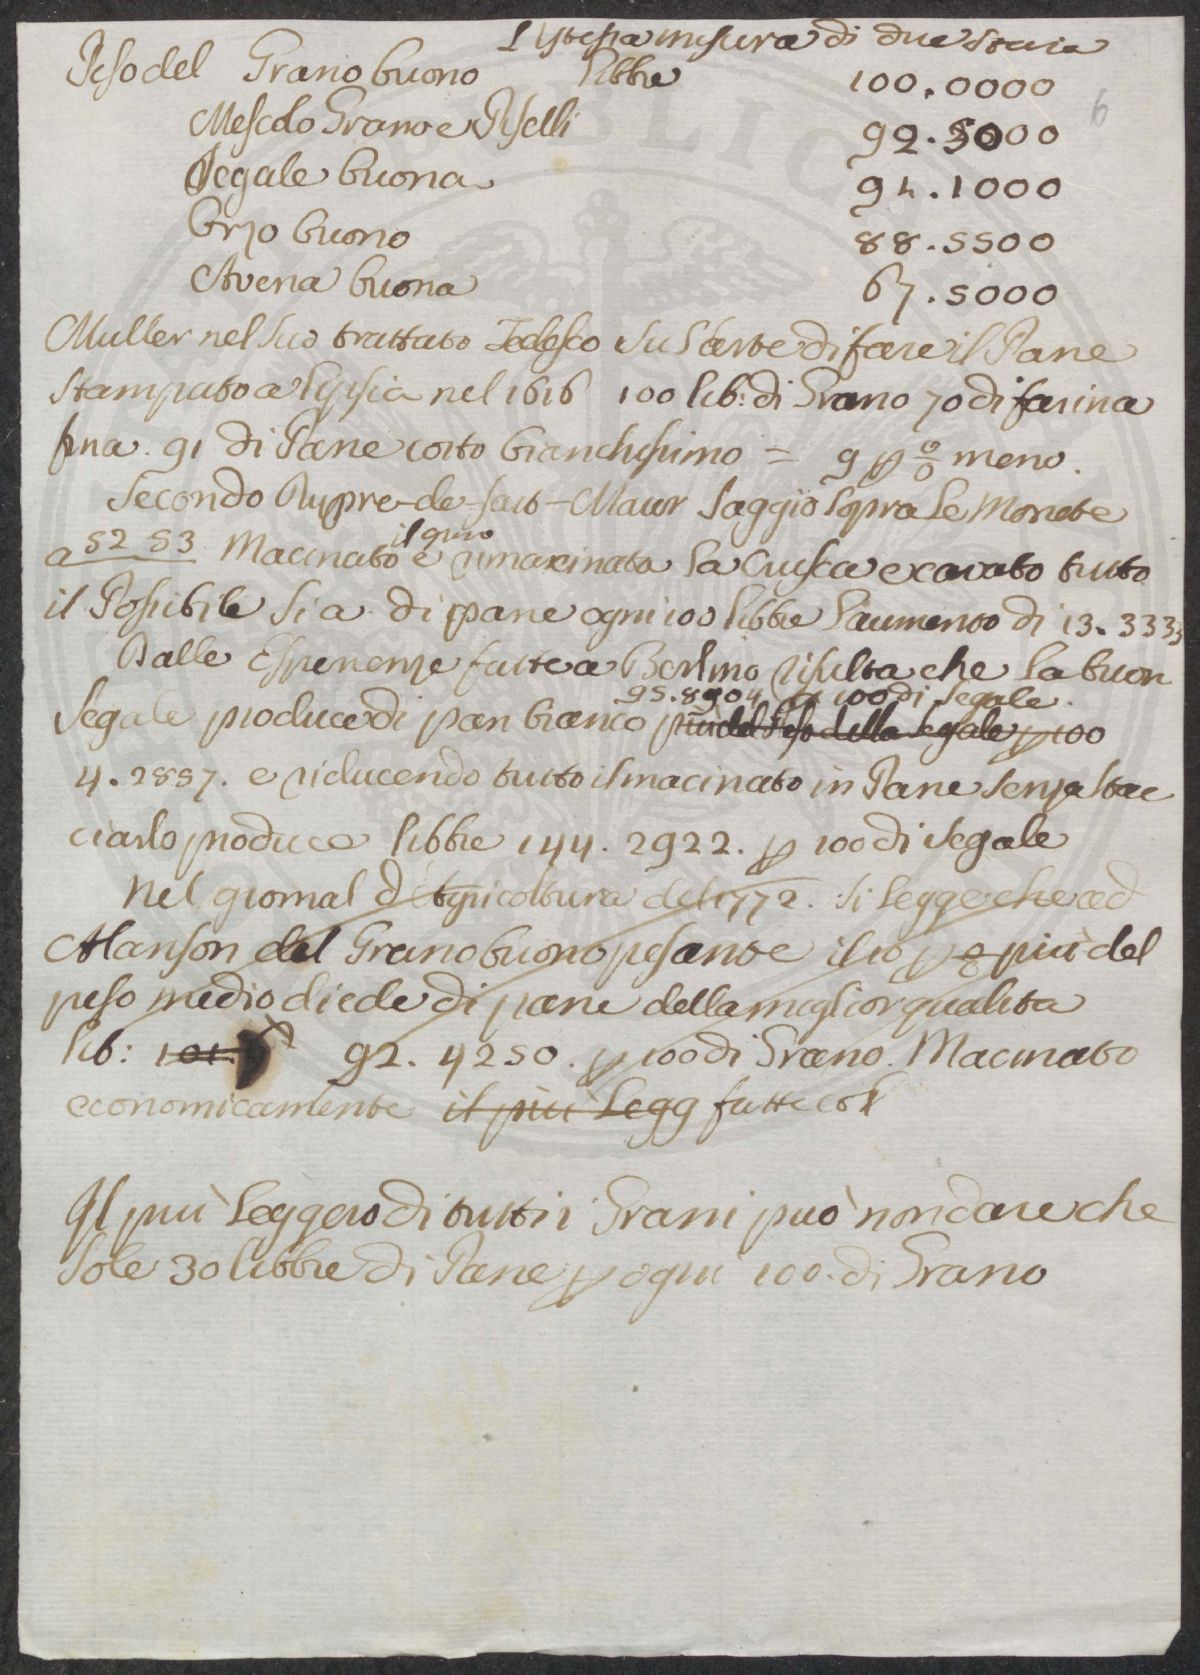 L'istessa misura di due staia
Peso del Grano buono Libbre 100.0000
6
Mescolo Grano e Piselli 92.5000
Segale buona 94.1000
Orzo buono 88.5500
Avena buona 67.5000
Muller nel suo trattato Tedesco su l'arte di fare il Pane
stampato a Lipsia nel 1616 100 lib: di Grano 70 di farina
fina. 91 di Pane cotto bianchissimo = 9 p % meno.
Secondo Dupre-de-saint-Maur saggio sopra le Monete
il grano
a 52 53 Macinato e rimacinata la Crusca e cavato tutto
il Possibile si a di pane ogni 100 libbre l'aumento di 13.3333
Dalle Esperienze fatte a Berlino risulta che la buon
95.8904 p 100 di segale.
Segale produce di pan bianco più del Peso della segale p 100
4.2857. e riducendo tutto il macinato in Pane senza stac
ciarlo produce libbre 144.2922. p 100 di segale
Nel giornal d'Agricoltura del 1772. si legge che ad
Alanson del Grano buono pesante il 10 p % più del
peso medio diede di pane della miglior qualita
lib: 101. 92.4250. p 100 di Grano. Macinato
economicamente il più Legg fatte col
Il più Leggero di tutti i Grani può non dare che
sole 30 libbre di Pane p ogni 100. di Grano
PUBLIC